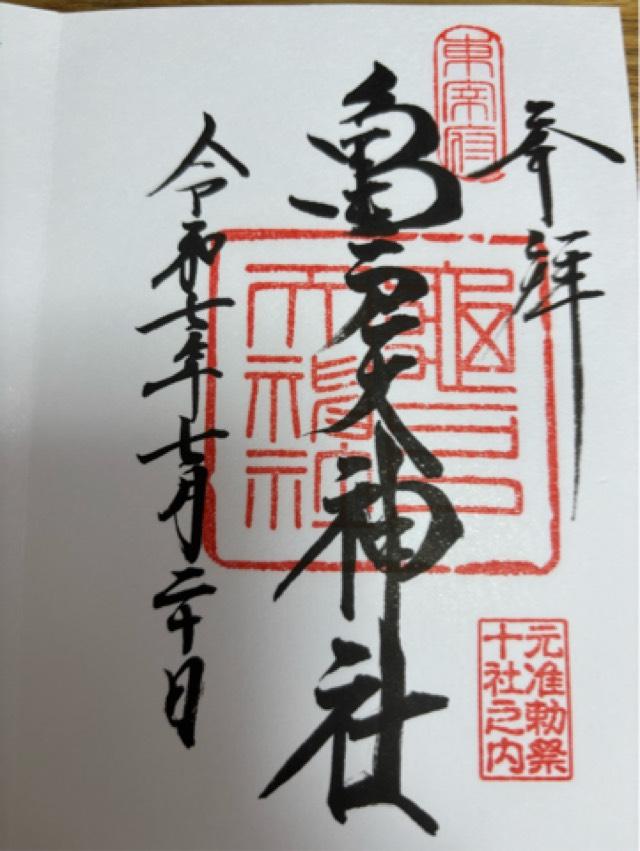 奉拝
東宰府
亀戸天神社
亀戸天神社
元准勅祭
十社之内
令和七年七月二十日